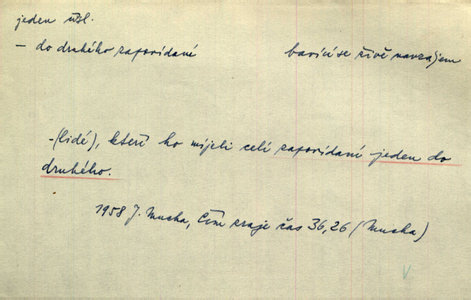 jeden čísl.
– do druhého zapovídaní bavící se živě navzájem
–(lidé), kteří ho míjeli celí zapovídaní jeden do
druhého.
1958 J. Mucha, Čím zraje čas 36,26 (Mucha)
V